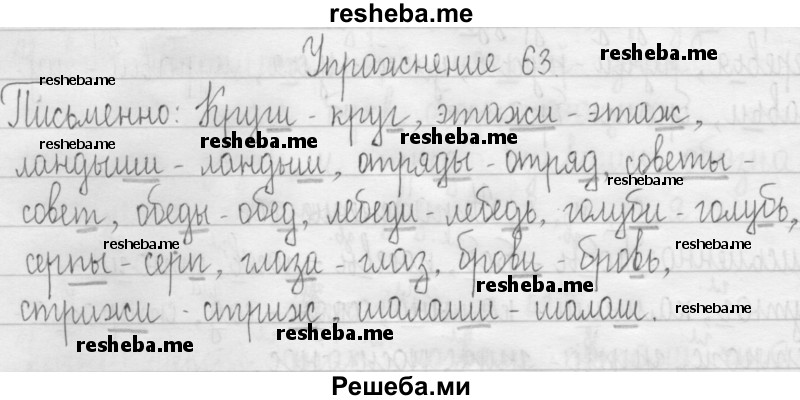 resheba.me
Упражнение 63.
resheba.me
resheba.me
Письменно: Круги - круг, этажи - этаж,
resheba.me
resheba.me
ландыши - ландыш, отряды - отряд, советы -
resheba.me
совет, обеды - обед, лебеди - лебедь, голуби - голубь,
resheba.me
resheba.me
серпы - серп, глаза - глаз, брови - бровь,
resheba.me
стрижи - стриж, шалаши - шалаш.
resheba.me
resheba.me
resheba.me
Решеба.ми